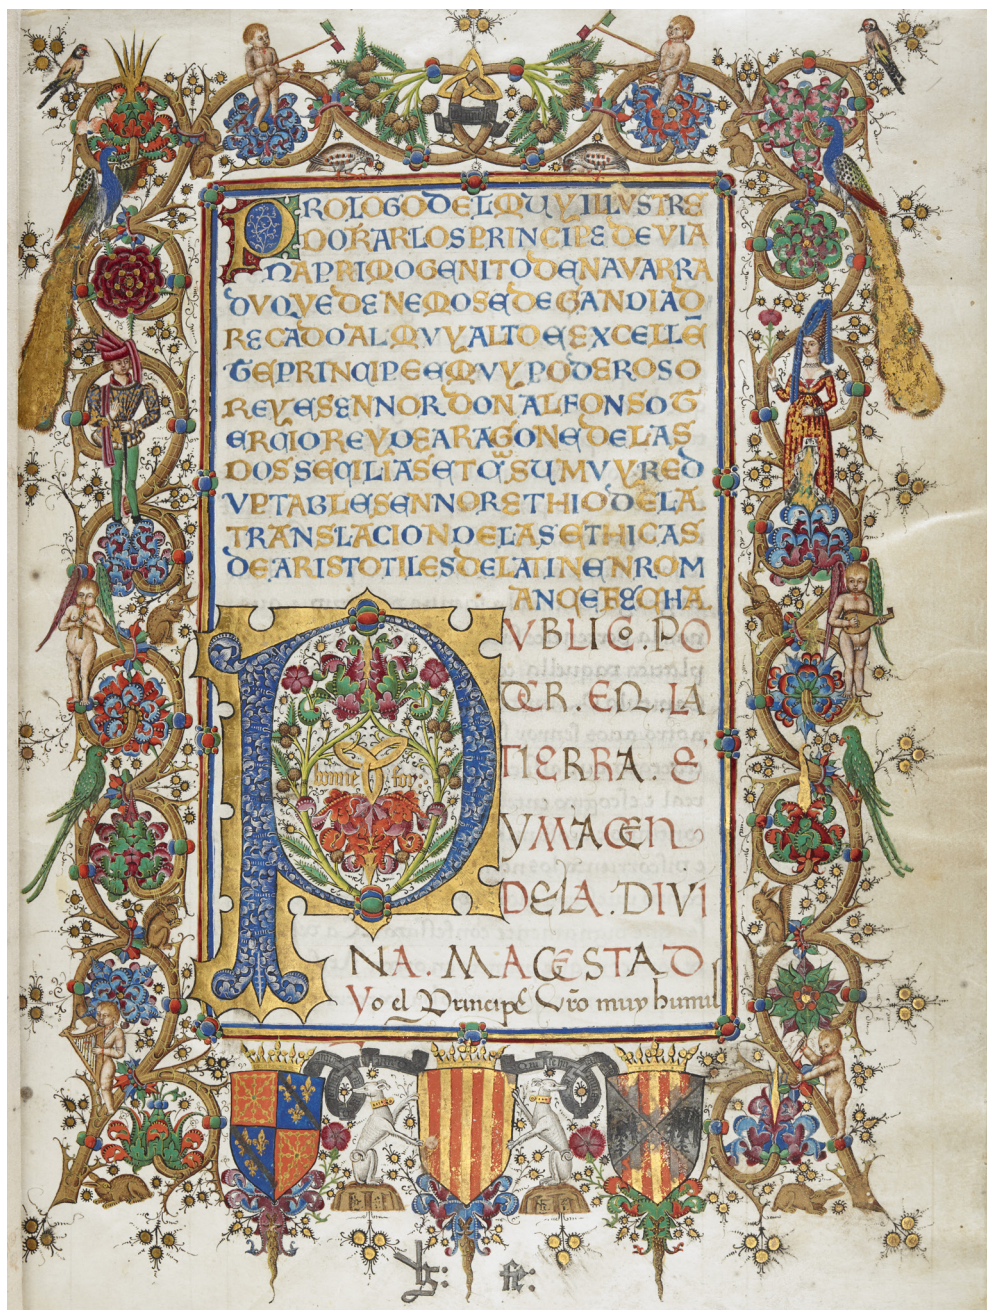 PROLOGO DEL MUY ILLUSTRE
DO KARLOS PRINCIPE DE VIA
NA PRIMOGENITO DE NAVARRA
DUQUE DE NEMOS E DE GANDIA D
REÇADO AL MUY ALTO E EXCELLĒ
TE PRINCIPE E MUY PODEROSO
REY E SENNOR DON ALFONSO T
ERÇIO REY DE ARAGON E DE LAS
DOS SEÇILIAS ET Õ SU MUY RED
VPTABLE SENNOR ET HIO DE LA
TRANSLACION DE LAS ETHICAS
DE ARISTOTILES DE LATIN EN ROM
ANÇE FECHA
PUBLIC. PO
DER. EN LA
TIERRA. E
YMAGEN
DE LA. DIVI
NA. MAGESTAD
Yo el Principe Vr̃o muy humil
bonne foy